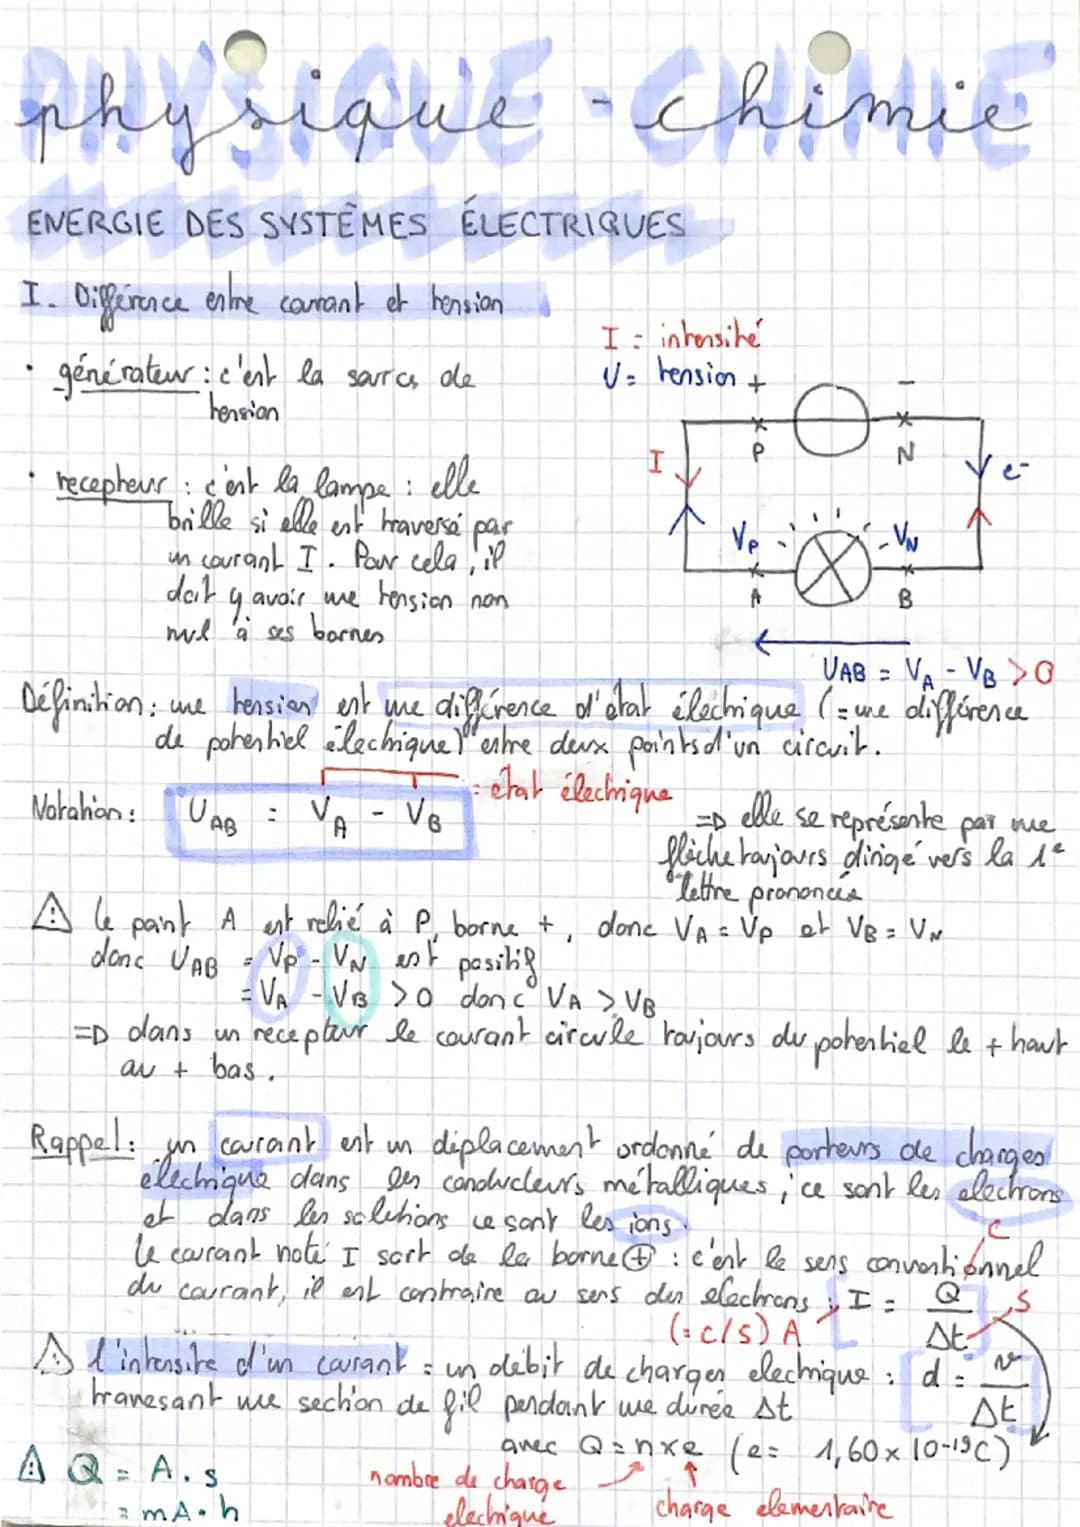 PHYSIQUE-CHIMIE
physique - chimie
ENERGIE DES SYSTÊMES ÉLECTRIQUES
I. Différence entre courant et tension
• générateur : c'est la source de
tension
I = intensité
U = tension
+ -
P N
I e-
• recepteur : c'est la lampe : elle
brille si elle est traversé par
un courant I. Pour cela, il
doit y avoir une tension non
nul à ses bornes
VP VN
A B
UAB = VA - VB > 0
Définition : une tension est une différence d'état électrique (= une différence
de potentiel électrique) entre deux points d'un circuit.
Notation : UAB = VA - VB
= état électrique
=D elle se représente par une
flèche toujours dirigé vers la 1e
lettre prononcée
⚠ le point A est relié à P, borne +, donc VA = VP et VB = VN
donc UAB = VP - VN est positif
= VA - VB > 0 donc VA > VB
=D dans un recepteur le courant circule toujours du potentiel le + haut
au + bas.
Rappel : un courant est un déplacement ordonné de porteurs de charges
électrique dans les conducteurs métalliques, ce sont les electrons
et dans les solutions ce sont les ions.
le courant noté I sort de la borne ⊕ : c'est le sens conventionnel
du courant, il est contraire au sens des electrons : I = Q/Δt
C
S
(= C/S) A
⚠ l'intensite d'un courant = un débit de charges electrique : d = v/Δt
traversant une section de fil pendant une durée Δt
avec Q = n×e (e = 1,60 × 10-19C)
⚠ Q = A.s
= mA.h
nombre de charge
electrique
charge elementaire